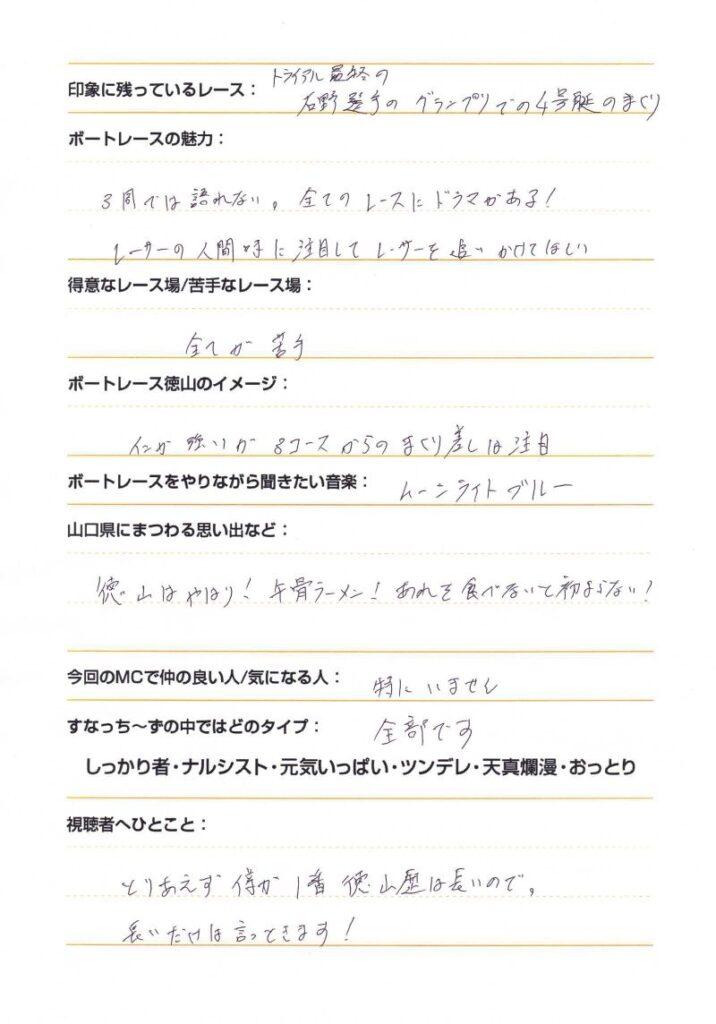 トライアル最終の
印象に残っているレース： 石野選手の グランプリでの4号艇のまくり
ボートレースの魅力：
3周では語れない。全てのレースにドラマがある！
レーサーの人間味に注目してレーサーを追いかけてほしい
得意なレース場/苦手なレース場：
全てが苦手
ボートレース徳山のイメージ：
インが強いが 3コースからのまくり差しは注目
ボートレースをやりながら聞きたい音楽： ムーンライトブルー
山口県にまつわる思い出など：
徳山はやはり！牛骨ラーメン！あれを食べないと初まらない！
今回のMCで仲の良い人/気になる人： 特にいません
すなっち～ずの中ではどのタイプ： 全部です
しっかり者・ナルシスト・元気いっぱい・ツンデレ・天真爛漫・おっとり
視聴者へひとこと：
とりあえず僕が1番徳山歴は長いので、
長いだけは言っときます！